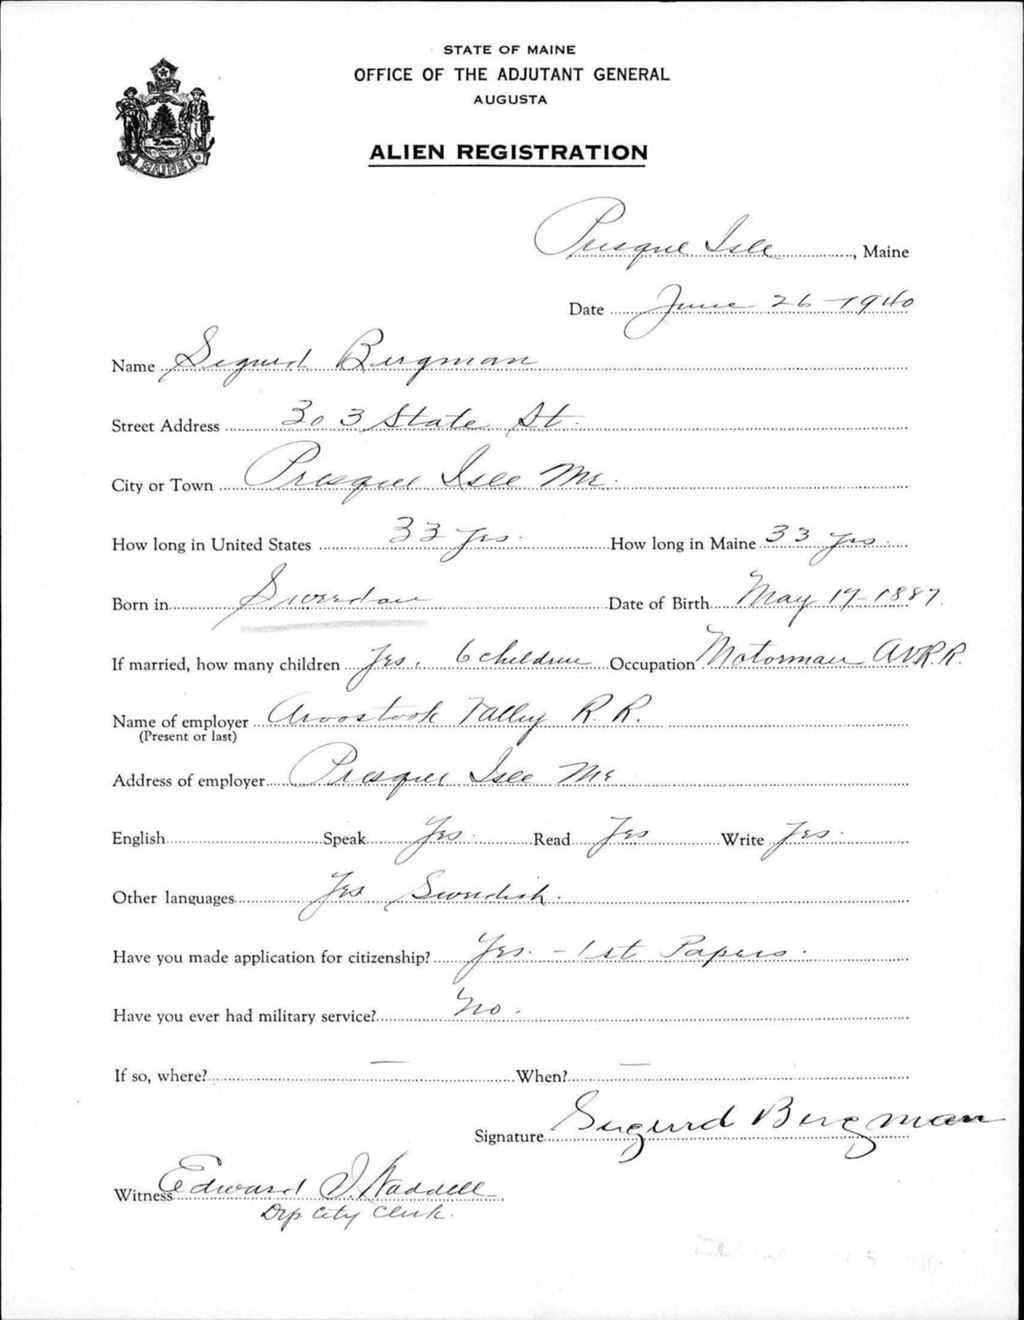 STATE OF MAINE
OFFICE OF THE ADJUTANT GENERAL
AUGUSTA
MAINE
ALIEN REGISTRATION
Presque Isle, Maine
Date June 26-1940
Name Sigurd Bergman
Street Address 303 State St.
City or Town Presque Isle Me.
How long in United States 33 yrs. How long in Maine 33 yrs.
Born in Sweedan Date of Birth May 19-1887
If married, how many children Yes, 6 children Occupation Motorman AVR.R.
Name of employer Aroostook Valley R. R.
(Present or last)
Address of employer Presque Isle Me
English Speak Yes. Read Yes Write Yes.
Other languages Yes Swedish.
Have you made application for citizenship? Yes. - 1st Papers.
Have you ever had military service? No.
If so, where? — When? —
Signature Sigurd Bergman
Witness Edward J. Waddell
Dep. City Clerk.